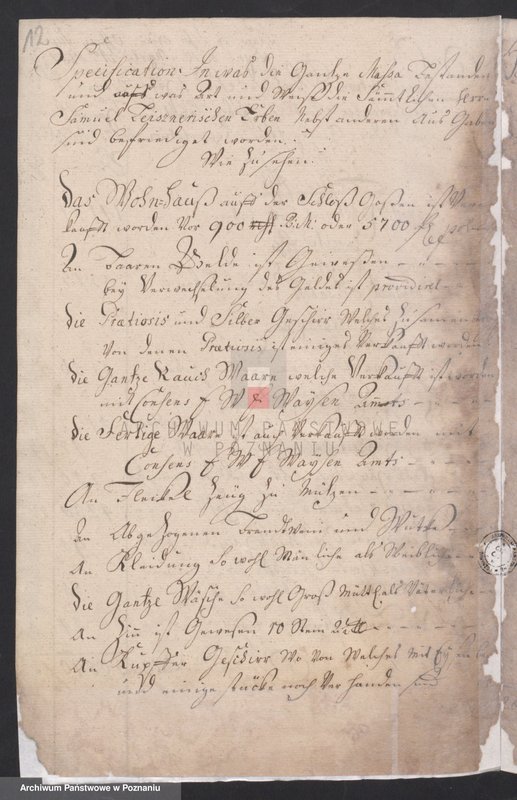 12
Specification In was die Gantze Massa bestanden
und auch was Art und Weiß die Sämtlichen Herrn
Samuel Zeisznerischen Erben Nebst anderen Aus Gaben
sind befriediget worden.
Wie zu sehen.
Das Wohn-Hauß auf der Schloß Gaßen ist Ver
kauft worden vor 900 oder 5700
An Baaren Gelde ist Gewesen
bey Verwechselung des Geldes ist
Die Prætiosis und Silber Geschirr Welches Zusamen
Von denen Prætiosis ist einiges Verkauft worden
die Gantze Rauch Waare welche Verkauft ist worden
mit Consens Waysen Ambts
die Fertige Waare ist auch Verkauft worden mit
Consens Waysen Amts
An Zeüg zu Mützen
an Abgezogenen Brandtwein und Wutke
An Kleidung so wohl Männliche als Weibliche
die Gantze Wäsche so wohl Groß Mütterl. als Väterliche
An Zinn ist Gewesen 10 Stein 22
An Kupffer Geschirr Wo von Welches mit
und einige stücke noch Verhanden sind
ARCHIWUM PAŃSTWOWE
W POZNANIU
Archiwum Państwowe w Poznaniu